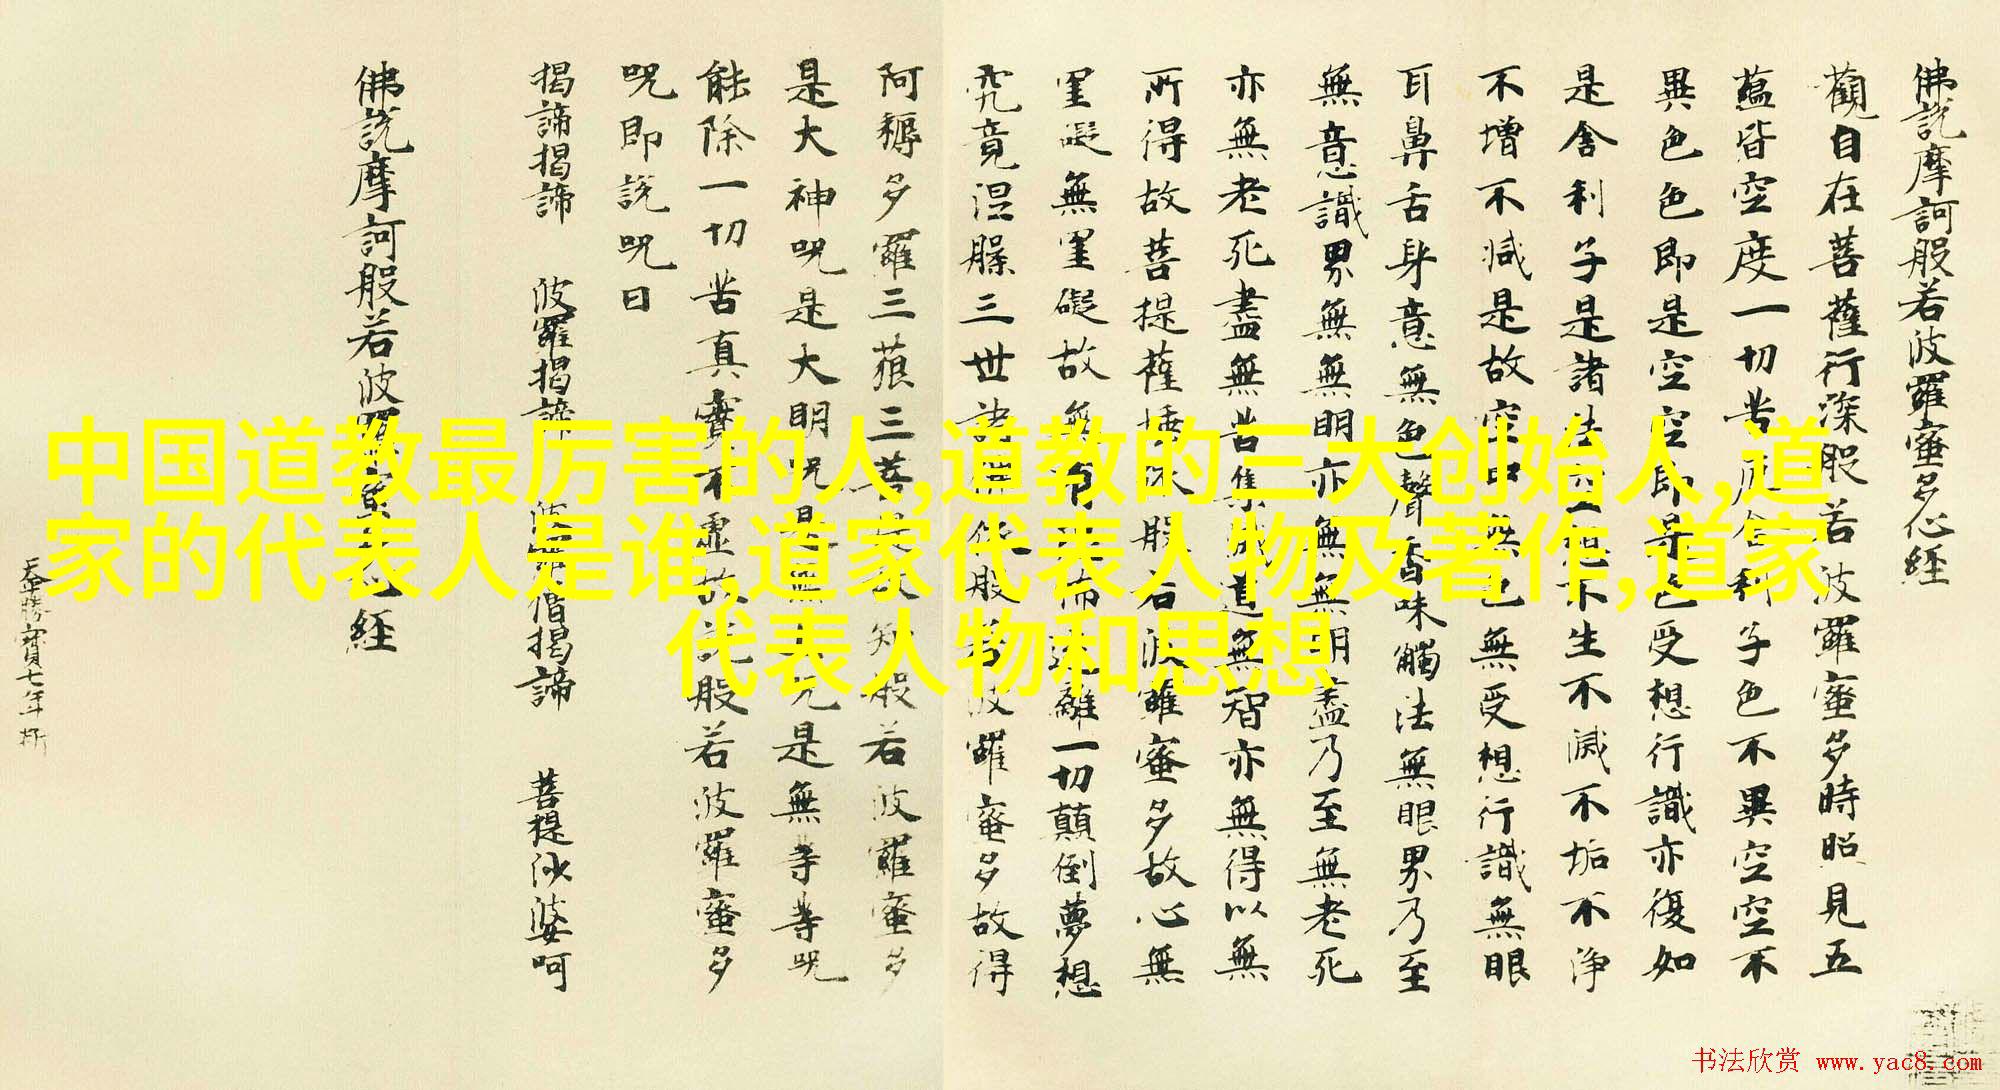 佛說摩訶般若波羅蜜多心經
觀自在菩薩行深般若波羅蜜多時照見五
蘊皆空度一切苦厄舍利子色不異空空不
異色色即是空空即是色受想行識亦復如
是舍利子是諸法空相不生不滅不垢不淨
不增不減是故空中無色無受想行識無眼
耳鼻舌身意無色聲香味觸法無眼界乃至
無意識界無無明亦無無明盡乃至無老死
亦無老死盡無苦集滅道無智亦無得以無
所得故菩提薩埵依般若波羅蜜多故心無
罣礙無罣礙故無有恐怖遠離一切顛倒夢想
究竟涅槃三世諸佛依般若波羅蜜多故得
阿耨多羅三藐三菩提故知般若波羅蜜多
是大神咒是大明咒是無上咒是無等等咒
能除一切苦真實不虛故說般若波羅蜜多
咒即說咒曰
揭諦揭諦 波羅揭諦 波羅僧揭諦 菩提沙婆呵
佛說摩訶般若波羅蜜多心經
勝寶七年
中国道教最厉害的人,道教的三大创始人,道
家的代表人是谁,道家代表人物及著作,道家
代表人物和思想
书法欣赏 www.yac8.com